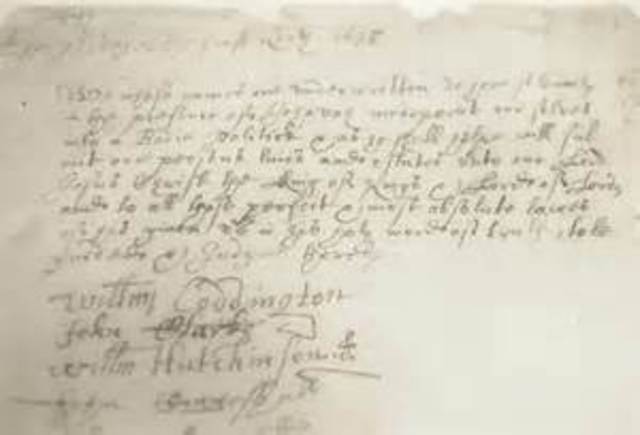 1638
whose names are underwritten do
presence of Jehovah incorporate our selves
into a Bodie Politick & as he shall helpe will sub
mit our persons lives and estates unto our Lord
Jesus Christ the King of Kings & Lord of Lords
and to all those perfect & most absolute lawes
of his given us in his holy word of truth to be
guided & Judged
Willm Coddington
John Clarke
Willm Hutchinson